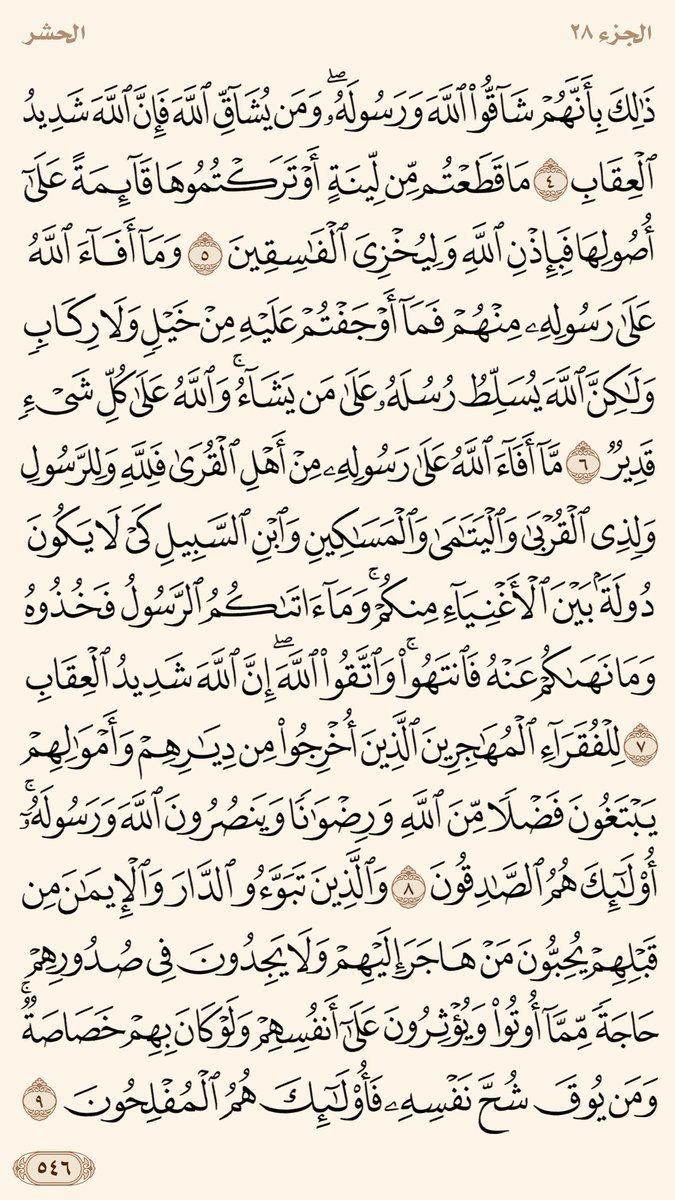 الجزء ٢٨
الحشر
ذَٰلِكَ بِأَنَّهُمْ شَآقُّوا۟ ٱللَّهَ وَرَسُولَهُۥ ۖ وَمَن يُشَآقِّ ٱللَّهَ فَإِنَّ ٱللَّهَ شَدِيدُ
ٱلْعِقَابِ ٤ مَا قَطَعْتُم مِّن لِّينَةٍ أَوْ تَرَكْتُمُوهَا قَآئِمَةً عَلَىٰٓ
أُصُولِهَا فَبِإِذْنِ ٱللَّهِ وَلِيُخْزِىَ ٱلْفَـٰسِقِينَ ٥ وَمَآ أَفَآءَ ٱللَّهُ
عَلَىٰ رَسُولِهِۦ مِنْهُمْ فَمَآ أَوْجَفْتُمْ عَلَيْهِ مِنْ خَيْلٍ وَلَا رِكَابٍ
وَلَـٰكِنَّ ٱللَّهَ يُسَلِّطُ رُسُلَهُۥ عَلَىٰ مَن يَشَآءُ ۚ وَٱللَّهُ عَلَىٰ كُلِّ شَىْءٍ
قَدِيرٌ ٦ مَّآ أَفَآءَ ٱللَّهُ عَلَىٰ رَسُولِهِۦ مِنْ أَهْلِ ٱلْقُرَىٰ فَلِلَّهِ وَلِلرَّسُولِ
وَلِذِى ٱلْقُرْبَىٰ وَٱلْيَتَـٰمَىٰ وَٱلْمَسَـٰكِينِ وَٱبْنِ ٱلسَّبِيلِ كَىْ لَا يَكُونَ
دُولَةًۢ بَيْنَ ٱلْأَغْنِيَآءِ مِنكُمْ ۚ وَمَآ ءَاتَىٰكُمُ ٱلرَّسُولُ فَخُذُوهُ
وَمَا نَهَىٰكُمْ عَنْهُ فَٱنتَهُوا۟ ۚ وَٱتَّقُوا۟ ٱللَّهَ ۖ إِنَّ ٱللَّهَ شَدِيدُ ٱلْعِقَابِ
٧ لِلْفُقَرَآءِ ٱلْمُهَـٰجِرِينَ ٱلَّذِينَ أُخْرِجُوا۟ مِن دِيَـٰرِهِمْ وَأَمْوَٰلِهِمْ
يَبْتَغُونَ فَضْلًا مِّنَ ٱللَّهِ وَرِضْوَٰنًا وَيَنصُرُونَ ٱللَّهَ وَرَسُولَهُۥٓ ۚ
أُو۟لَـٰٓئِكَ هُمُ ٱلصَّـٰدِقُونَ ٨ وَٱلَّذِينَ تَبَوَّءُو ٱلدَّارَ وَٱلْإِيمَـٰنَ مِن
قَبْلِهِمْ يُحِبُّونَ مَنْ هَاجَرَ إِلَيْهِمْ وَلَا يَجِدُونَ فِى صُدُورِهِمْ
حَاجَةً مِّمَّآ أُوتُوا۟ وَيُؤْثِرُونَ عَلَىٰٓ أَنفُسِهِمْ وَلَوْ كَانَ بِهِمْ خَصَاصَةٌ ۚ
وَمَن يُوقَ شُحَّ نَفْسِهِۦ فَأُو۟لَـٰٓئِكَ هُمُ ٱلْمُفْلِحُونَ ٩
٥٤٦